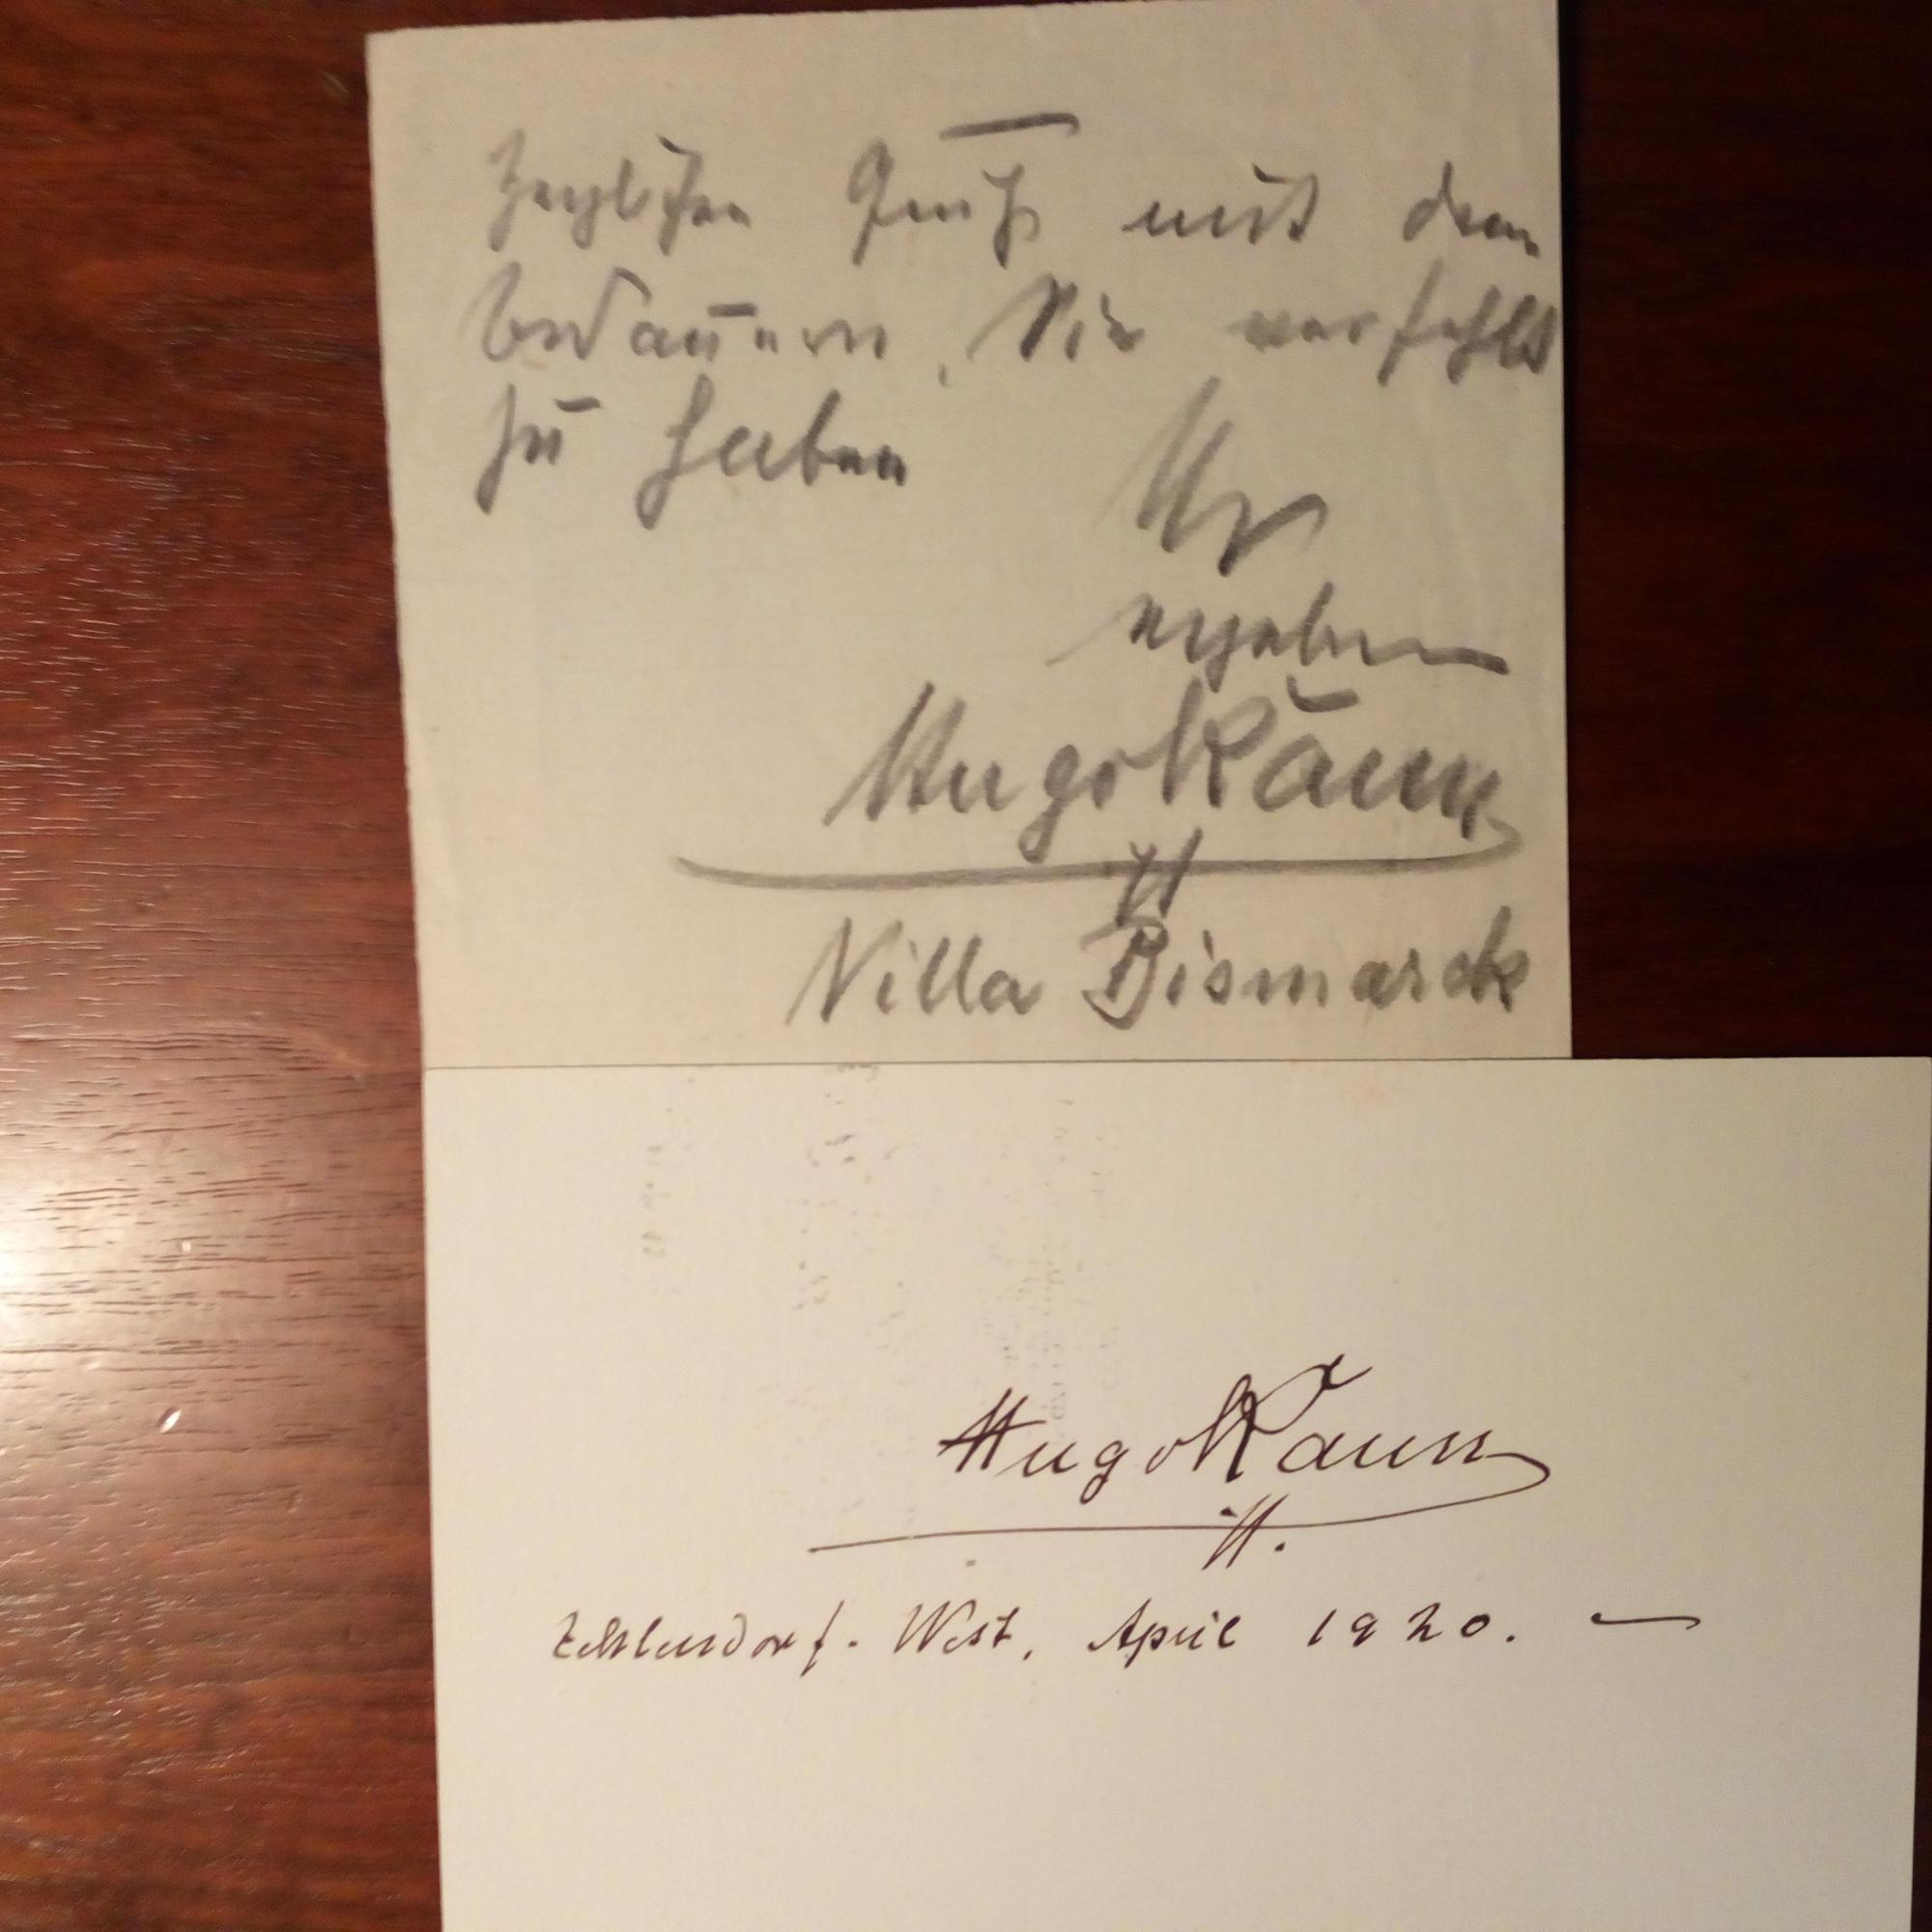 Herzlichen Gruß mit dem
Bedauern, Sie verfehlt
zu haben
Ihr
ergebener
Hugo Kaun
Villa Bismarck
Hugo Kaun
Zehlendorf-West, April 1920. —